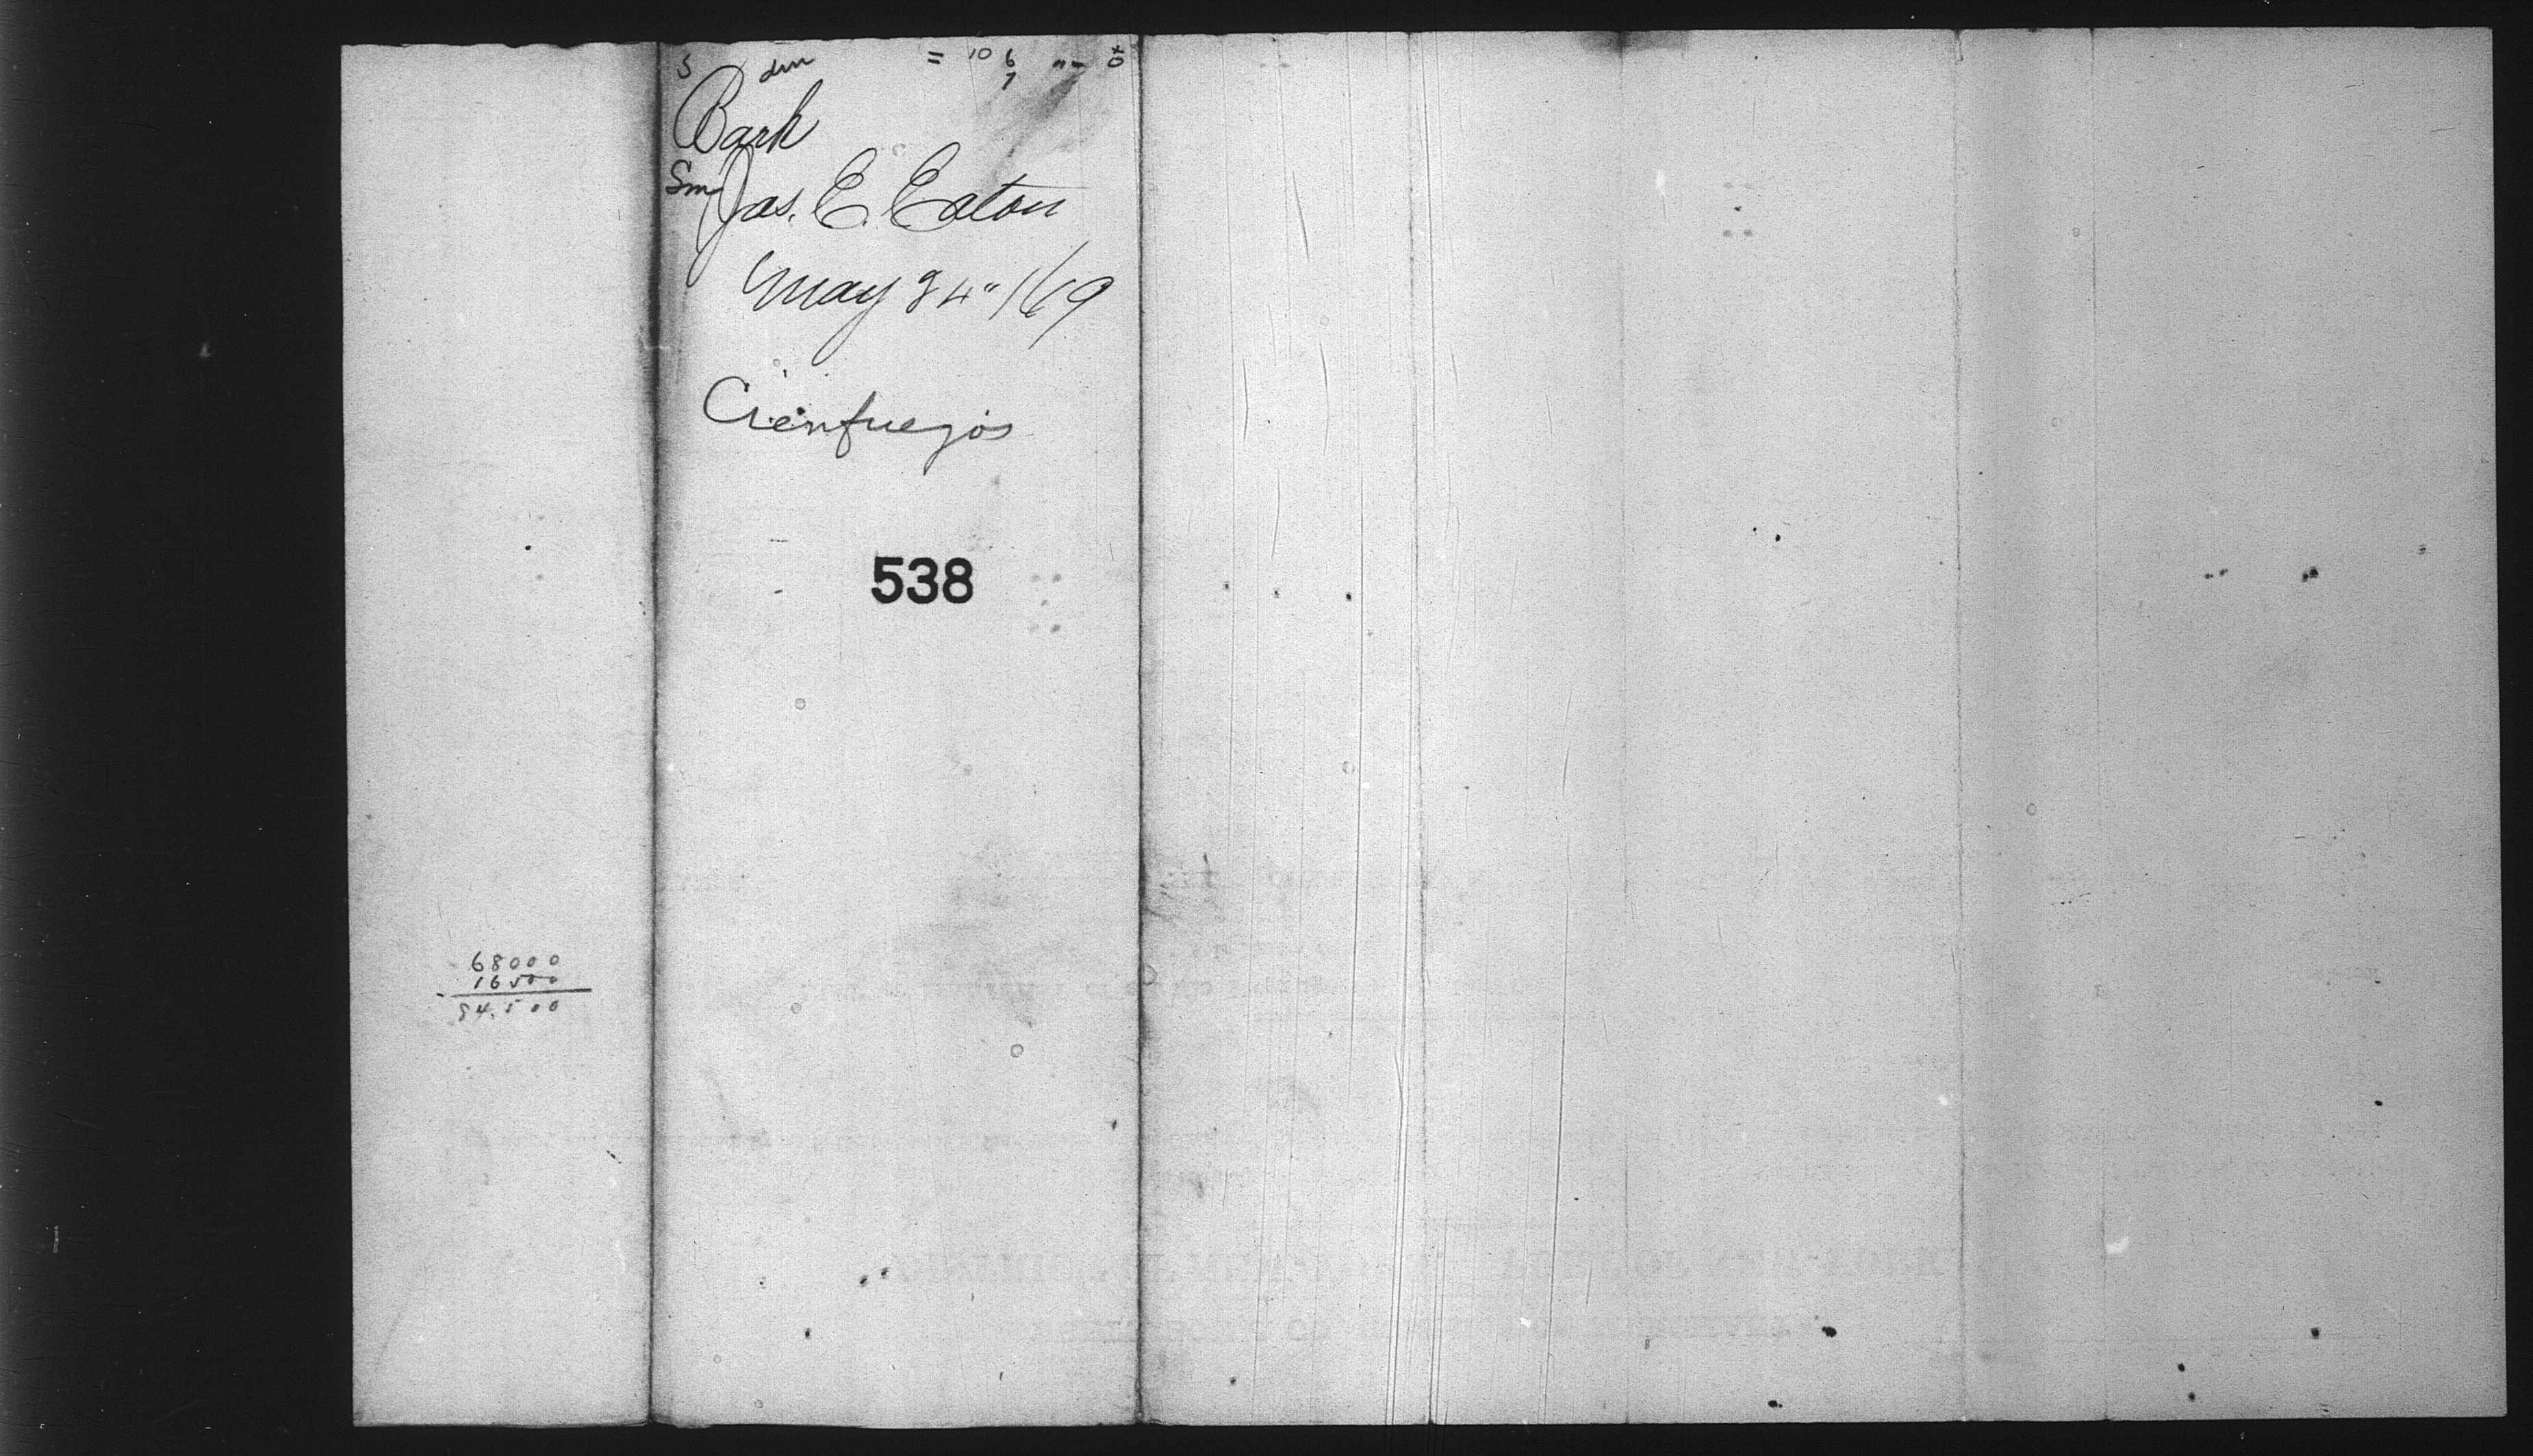 Bark
Jas. E. Eaton
May 24" /69
Cienfuegos
538
68000
16500
84,500